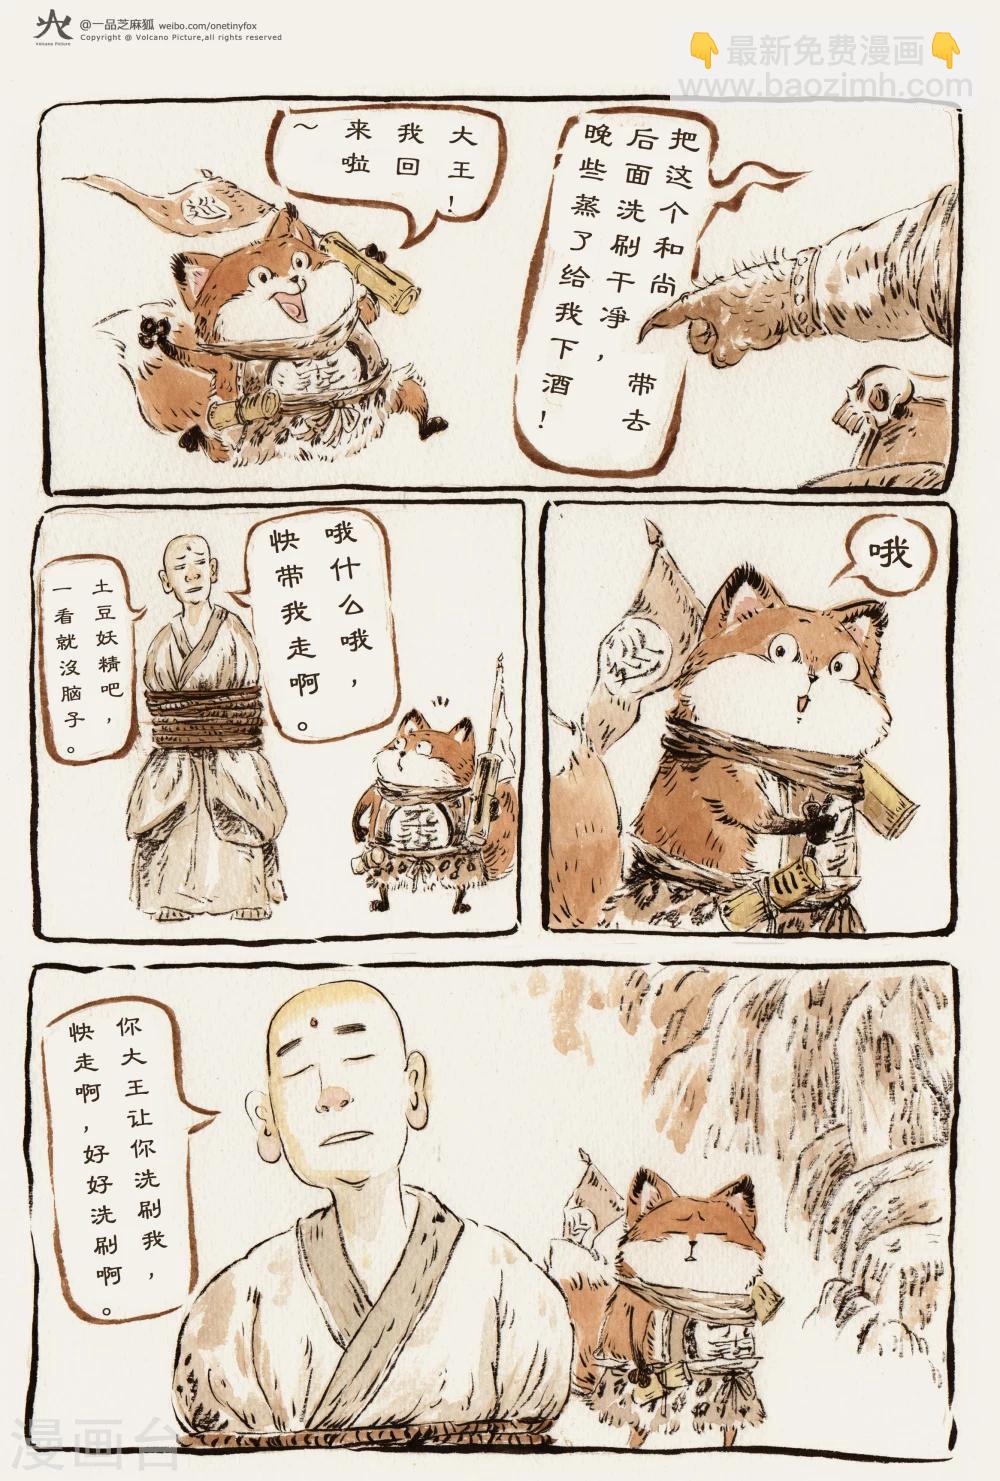 @一品芝麻狐 weibo.com/onetinyfox
Copyright @ Volcano Picture,all rights reserved
Volcano Picture
最新免费漫画
www.baozimh.com
大王!
我回
来啦
~
巡
把这个和尚
带去
后面洗刷干净,
晚些蒸了给我下酒!
哦什么哦,
快带我走啊。
土豆妖精吧,
一看就沒脑子。
哦
你大王让你洗刷我,
快走啊,好好洗刷啊。
漫画台